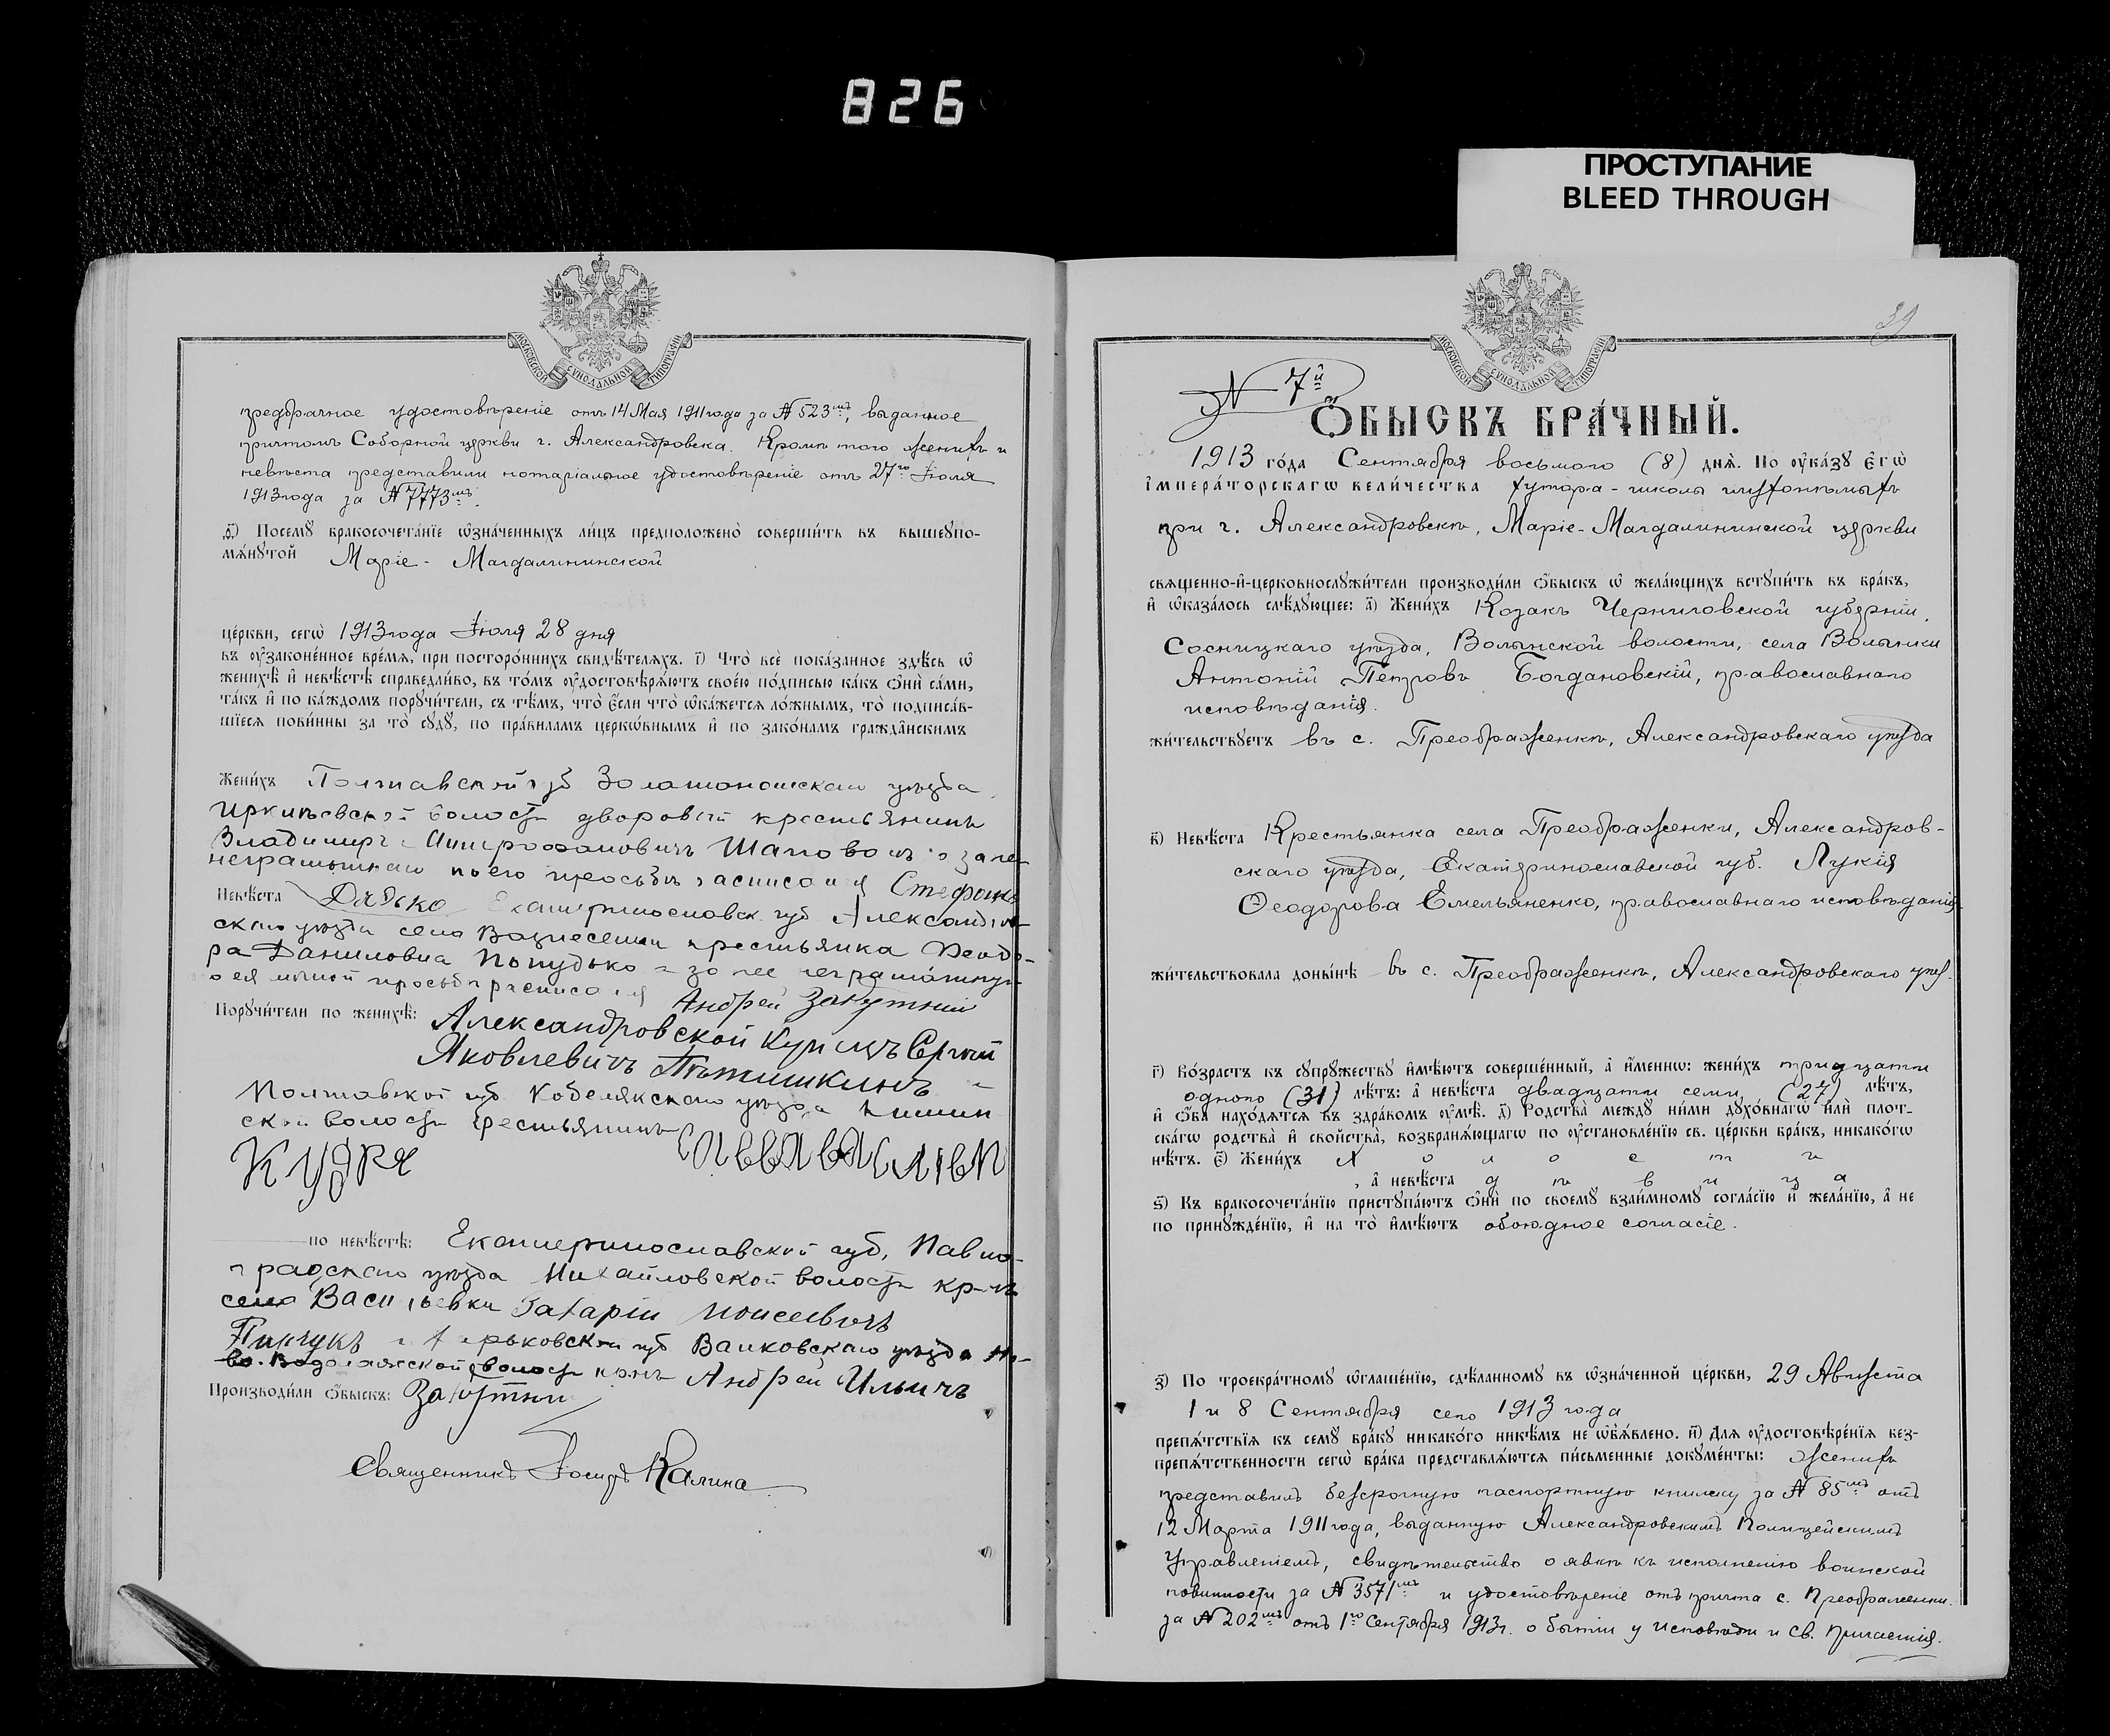 826
ПРОСТУПАНИЕ
BLEED THROUGH
МОСКОВСКОЙ СѴНОДАЛЬНОЙ ТИПОГРАФІИ
предбрачное удостовѣреніе отъ 14 Мая 1911 года за № 523мъ, выданное
причтомъ Соборной церкви г. Александровска. Кромѣ того женихъ и
невѣста представили нотаріальное удостовѣреніе отъ 27го Іюля
1913 года за № 7773мъ.
Посемꙋ̀ бракосочета́нїе ѡ҆зна́ченныхъ ли́цъ предположено̀ соверши́ть въ вышеꙋпо-
мѧ́нꙋтой Маріе - Магдалининской
це́ркви, сегѡ̀ 1913 года Іюля 28 дня
въ ᲂу҆зако́ненное вре́мѧ, при посторо́ннихъ свидѣ́телѧхъ. і҃) Что̀ всѐ пока́занное здѣ́сь ѡ҆
женихѣ̀ и҆ невѣ́стѣ справедли́во, въ то́мъ ᲂу҆достовѣрѧ́ютъ свое́ю по́дписью ка́къ ѻ҆нѝ са́ми,
та́къ и҆ по ка́ждомъ порꙋчи́тели, съ тѣ́мъ, что̀ є҆́сли что̀ ѡ҆ка́жетсѧ ло́жнымъ, то̀ подписа́в-
шїесѧ пови́нны за то̀ сꙋдꙋ̀, по пра́виламъ церкѡ́внымъ и҆ по зако́намъ гражда́нскимъ
Жени́хъ Полтавской губ Золотоношскаго уѣзда
Ирклѣевской волости дворовый крестьянинъ
Владимиръ Митрофановичъ Шаповалъ а за него
неграмотнаго по его просьбѣ росписался Стефанъ
Невѣ́ста Дядько Екатеринославск. губ Александров-
скаго уѣзда села Вознесенки крестьянка Ѳеодо-
ра Даниловна Попудько а за нее неграмотную
по ея личной просьбѣ росписался Андрей Закутний
Порꙋчи́тели по женихѣ̀: Александровской Купецъ Сергѣй
Яковлевичъ Пѣтишкинъ
Полтавской губ Кобелякскаго уѣзда Кишин
ской волости крестьянинъ
Кудря
по невѣ́стѣ: Екатеринославской губ, Павло-
градскаго уѣзда Михайловской волости кр-нъ
села Васильевки Захарій Моисеевичъ
Пинчукъ и Харьковской губ Валковскаго уѣзда Но-
во-Водолажской волости кр-нъ Андрей Ильичъ
Производи́ли ѻ҆́быскъ: Закутний
Священникъ Іосифъ Калина
39
МОСКОВСКОЙ СѴНОДАЛЬНОЙ ТИПОГРАФІИ
№ 7й
Ѻ҆́БЫСКЪ БРА́ЧНЫЙ.
1913 го́да Сентября восьмого (8) днѧ̀. По ᲂу҆ка́зꙋ є҆гѡ̀
і҆мпера́торскагѡ вели́чества хутора - школы глухонѣмыхъ
при г. Александровскѣ, Маріе-Магдалининской церкви
свѧщенно-и҆-церковнослꙋжи́тели производи́ли ѻ҆́быскъ ѡ҆ жела́ющихъ встꙋпи́ть въ бра́къ,
и҆ ѡ҆каза́лось слѣ́дꙋющее: а҃) Жени́хъ Козакъ Черниговской губерніи,
Сосницкаго уѣзда, Волынской волости, села Волынки
Антоній Петровъ Богдановскій, православнаго
исповѣданія.
жи́тельствꙋетъ въ с. Преображенкѣ, Александровскаго уѣзда
в҃) Невѣ́ста Крестьянка села Преображенки, Александров-
скаго уѣзда, Екатеринославской губ. Лукія
Ѳеодорова Емельяненко, православнаго исповѣданія
жи́тельствовала доны́нѣ въ с. Преображенкѣ, Александровскаго уѣз.
г҃) Во́зрастъ къ сꙋпрꙋ́жествꙋ и҆мѣ́ютъ соверше́нный, а҆ и҆́меннѡ: жени́хъ тридцати
одного (31) лѣ́тъ: а҆ невѣ́ста двадцати семи (27) лѣ́тъ,
и҆ ѻ҆́ба нахо́дѧтсѧ въ здра́вомъ ᲂу҆мѣ̀. д҃) Родства̀ междꙋ̀ ни́ми дꙋхо́внагѡ и҆лѝ плот-
ска́гѡ родства̀ и҆ сво́йства, возбранѧ́ющагѡ по ᲂу҆становле́нїю св. це́ркви бра́къ, никако́гѡ
нѣ́тъ. є҃) Жени́хъ х о л о с т ъ
, а҆ невѣ́ста д ѣ в и ц а
ѕ҃) Къ бракосочета́нїю пристꙋпа́ютъ ѻ҆нѝ по своемꙋ̀ взаи́мномꙋ согла́сїю и҆ жела́нїю, а҆ не
по принꙋжде́нїю, и҆ на то̀ и҆мѣ́ютъ обоюдное согласіе.
з҃) По троекра́тномꙋ ѡ҆глаше́нїю, сдѣ́ланномꙋ въ ѡ҆зна́ченной це́ркви, 29 Августа
1 и 8 Сентября сего 1913 года
препѧ́тствїѧ къ семꙋ̀ бра́кꙋ никако́го никѣ́мъ не ѡ҆б̾ѧ́влено. и҃) Длѧ ᲂу҆достовѣре́нїѧ без-
препѧ́тственности сегѡ̀ бра́ка представлѧ́ютсѧ пи́сьменные докꙋме́нты: женихъ
представилъ безсрочную паспортную книжку за № 85мъ отъ
12 Марта 1911 года, выданную Александровскимъ Полицейскимъ
Управленіемъ, свидѣтельство о явкѣ къ исполненію воинской
повинности за № 3571мъ и удостовѣреніе отъ причта с. Преображенки
за № 202мъ отъ 1го Сентября 1913 г. о бытіи у исповѣди и Св. Причастія.